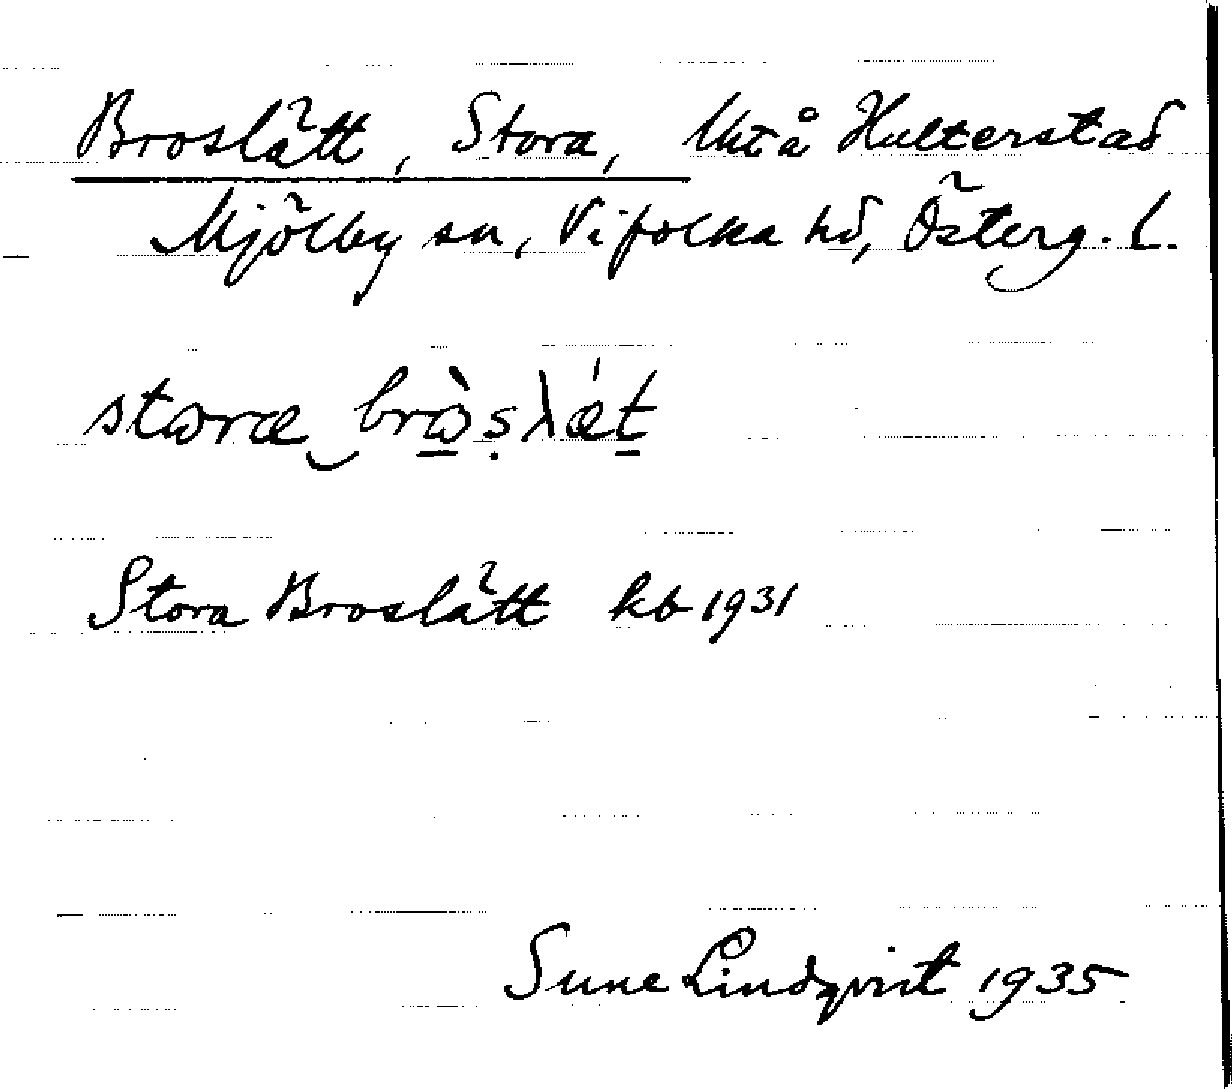 Broslätt, Stora, Uktå Hulterstad
Mjölby sn, Vifolka hd, Österg. L.
storæ brὼsλǽt
Stora Broslätt kb 1931
Sune Lindqvist 1935